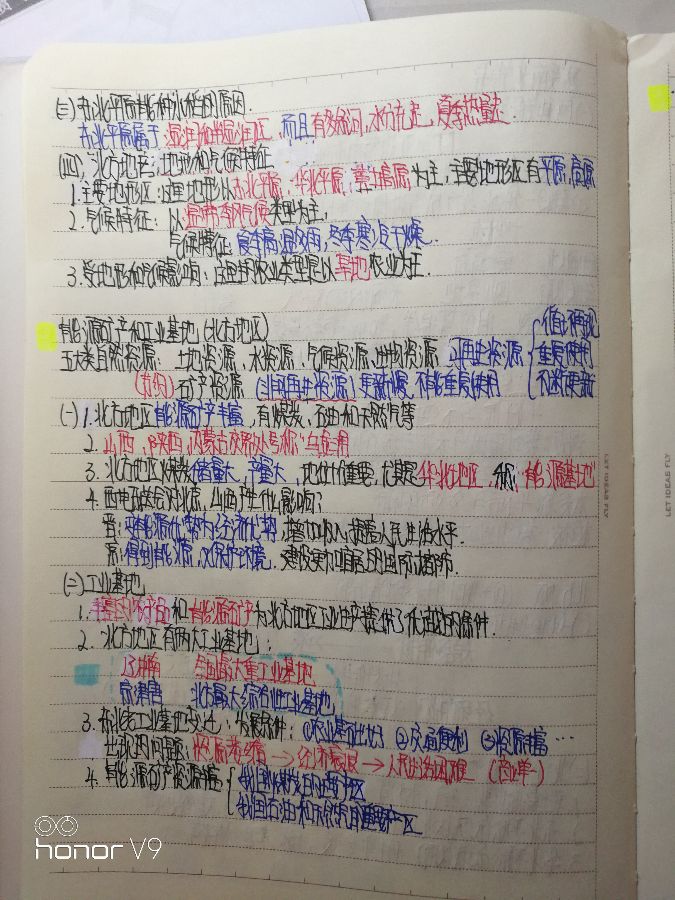 (三)东北平原能种水稻的原因.
东北平原属于湿润和半湿润区,而且有多条河,水分充足,夏季热量足
(四).北方地区:地形和气候特征
1.主要地形区:这里地形以东北平原,华北平原,黄土高原为主,主要地形区有平原,高原
2.气候特征:以温带季风气候类型为主,
气候特征:夏季高温多雨,冬季寒冷干燥.
3.受地形和气候影响:这里的农业类型是以旱地农业为主.
能源矿产和工业基地(北方地区)
五大类自然资源:土地资源、水资源、气候资源、生物资源 可再生资源 循环再现 重复使用 不断更新
(方的)矿产资源(非可再生资源)更新慢,不能重复使用
(一)1.北方地区能源矿产丰富,有煤炭、石油和天然气等
2.山西,陕西,内蒙古交界处号称"乌金用
3.北方地区煤炭储量大,产量大,地位什重要,尤其是华北地区,称:"能源基地"
4.西电东送会对北京,山西产生什么影响?
晋:变能源优势为经济优势,增加收入,提高人民生活水平.
京:得到能源,又保护环境.
(二)工业基地
1.丰富的农产品和能源矿产为北方地区工业生产提供了优越的条件.
2.北方地区有两大工业基地:
辽中南 全国最大重工业基地
京津唐 北方最大综合性工业基地
3.东北老工业基地变迁:发展条件:①农业基础比较 ②交通便利 ③资源丰富…
出现的问题:资源萎缩→经济衰退→人民生活困难(产业单一)
4.能源矿产资源丰富 我国煤炭的主要产区
我国石油和天然气的重要产区
LET IDEAS FLY
LET IDEAS FLY
honor V9